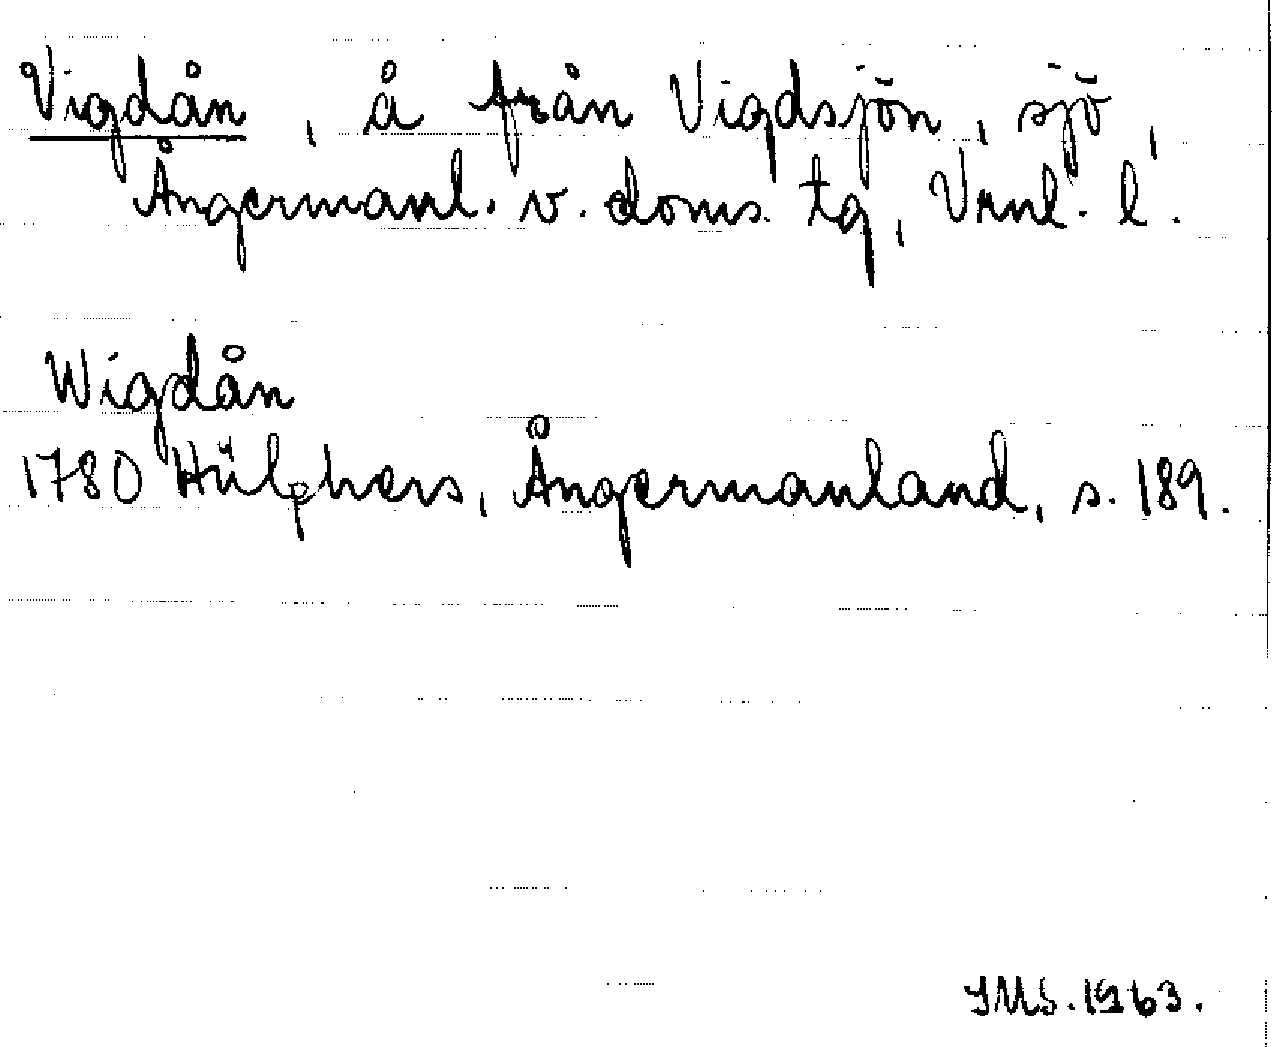 Vigdån , å från Vigdsjön, sjö,
Ångermanl. v. doms. tg, Vrnl. l.
Wigdån
1780 Hülphers, Ångermanland, s. 189.
YMS. 1963.